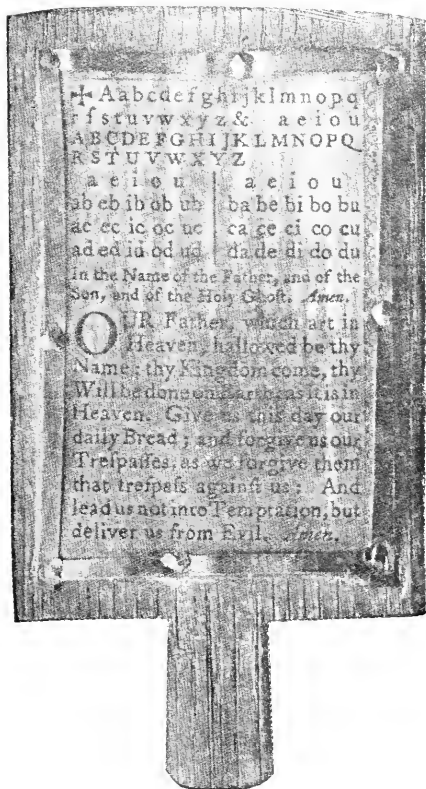 ✢ Aabcdefghijklmnopq
rſstuvwxyz& aeiou
ABCDEFGHIJKLMNOPQ
RSTUVWXYZ
a e i o u a e i o u
ab eb ib ob ub ba be bi bo bu
ac ec ic oc uc ca ce ci co cu
ad ed id od ud da de di do du
In the Name of the Father, and of the
Son, and of the Holy Ghoſt. Amen.
OUR Father, which art in
Heaven, hallowed be thy
Name; thy Kingdom come, thy
Will be done on Earth, as it is in
Heaven. Give us this day our
daily Bread; and forgive us our
Treſpaſſes, as we forgive them
that treſpaſs againſt us: And
lead us not into Temptation, but
deliver us from Evil. Amen.